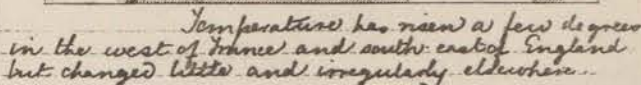 Temperature has risen a few degrees
in the west of France and south east of England
but changed little and irregularly elsewhere.